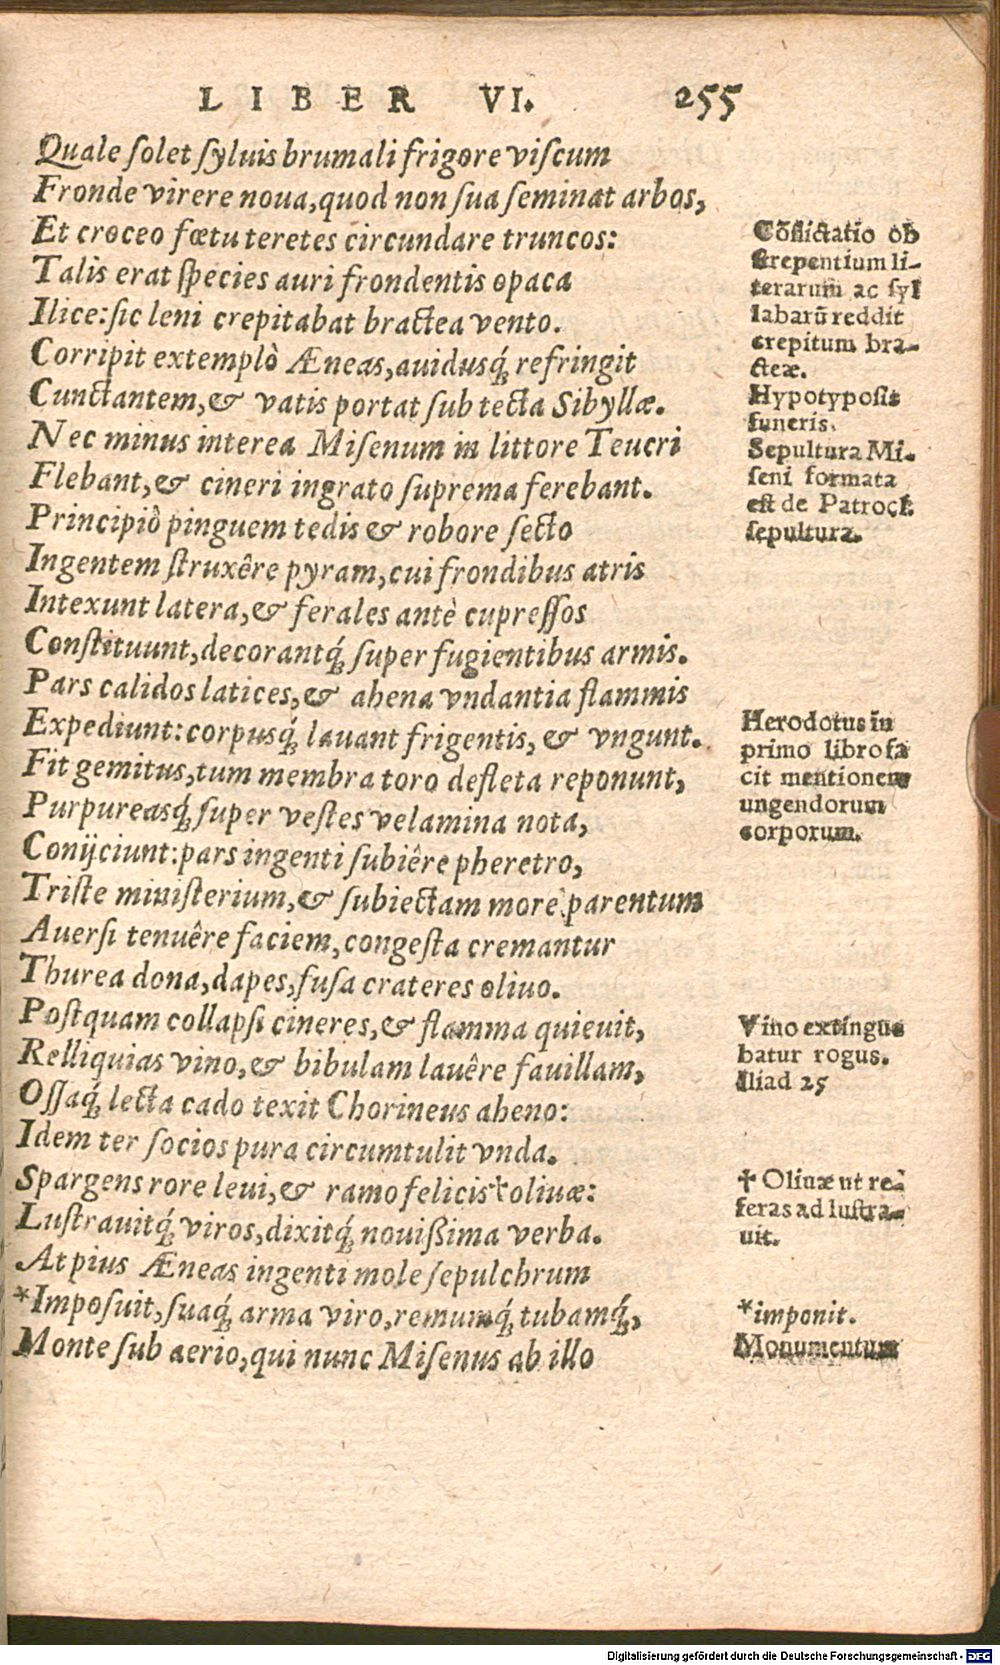 LIBER VI. 255
Quale ſolet ſyluis brumali frigore viſcum
Fronde virere noua, quod non ſua ſeminat arbos,
Et croceo fœtu teretes circundare truncos:
Talis erat ſpecies auri frondentis opaca
Ilice: ſic leni crepitabat bractea vento.
Corripit extemplò Æneas, auidusq́; refringit
Cunctantem, & vatis portat ſub tecta Sibyllæ.
Nec minus interea Miſenum in littore Teucri
Flebant, & cineri ingrato ſuprema ferebant.
Principiò pinguem tedis & robore ſecto
Ingentem ſtruxêre pyram, cui frondibus atris
Intexunt latera, & ferales antè cupreſſos
Conſtituunt, decorantq́; ſuper fugientibus armis.
Pars calidos latices, & ahena vndantia flammis
Expediunt: corpusq́; lauant frigentis, & vngunt.
Fit gemitus, tum membra toro defleta reponunt,
Purpureasq́; ſuper veſtes velamina nota,
Conijciunt: pars ingenti ſubiêre pheretro,
Triſte miniſterium, & ſubiectam more parentum
Auerſi tenuêre faciem, congeſta cremantur
Thurea dona, dapes, fuſa crateres oliuo.
Poſtquam collapſi cineres, & flamma quieuit,
Relliquias vino, & bibulam lauêre fauillam,
Oſſaq́; lecta cado texit Chorineus aheno:
Idem ter ſocios pura circumtulit vnda.
Spargens rore leui, & ramo felicis † oliuæ:
Luſtrauitq́; viros, dixitq́; nouißima verba.
At pius Æneas ingenti mole ſepulchrum
*Impoſuit, ſuaq́; arma viro, remumq́; tubamq́;,
Monte ſub aerio, qui nunc Miſenus ab illo
Cõflictatio ob
ſtrepentium li-
terarum ac ſyl
labarũ reddit
crepitum bra-
cteæ.
Hypotypoſis
funeris.
Sepultura Mi-
ſeni formata
eſt de Patrocli
ſepultura.
Herodotus in
primo libro fa
cit mentionem
ungendorum
corporum.
Vino extingue
batur rogus.
Iliad 25
† Oliuæ ut re-
feras ad luſtra-
uit.
*imponit.
Monumentum
Digitalisierung gefördert durch die Deutsche Forschungsgemeinschaft - DFG